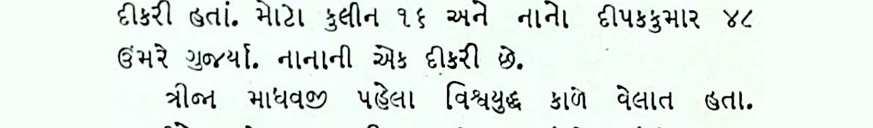 દીકરી હતાં. મોટો કુલીન ૧૬ અને નાનો દીપકકુમાર ૪૮
ઉંમરે ગુજર્યા. નાનાની એક દીકરી છે.
ત્રીજા માધવજી પહેલા વિશ્વયુદ્ધ કાળે વેલાત હતા.